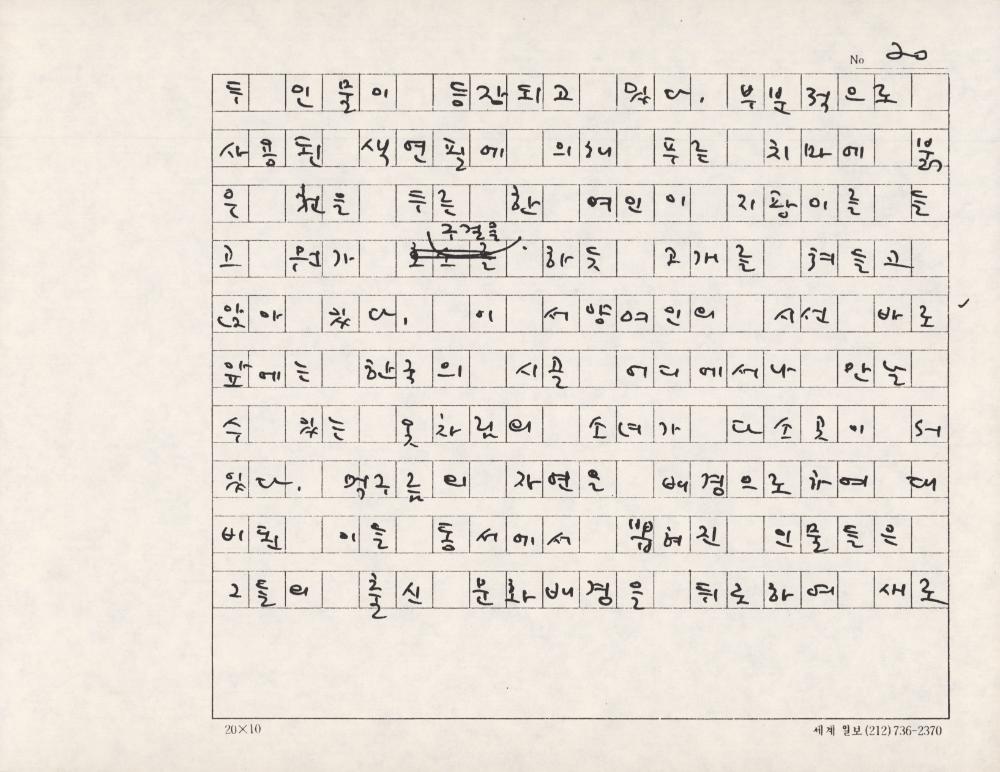 No 20
두 인물이 등장되고 있다. 부분적으로
사용된 색연필에 의해 푸른 치마에 붉
은 천을 두른 한 여인이 지팡이를 들
구걸을
고 무언가 호소를 하듯 고개를 쳐들고
앉아 있다. 이 서양여인의 시선 바로
앞에는 한국의 시골 어디에서나 만날
수 있는 옷차림의 소녀가 다소곳이 서
있다. 먹구름의 자연을 배경으로하여 대
비된 이들 동서에서 뽑혀진 인물들은
그들의 출신 문화배경을 뒤로하여 새로
20×10
세계 일보 (212) 736-2370